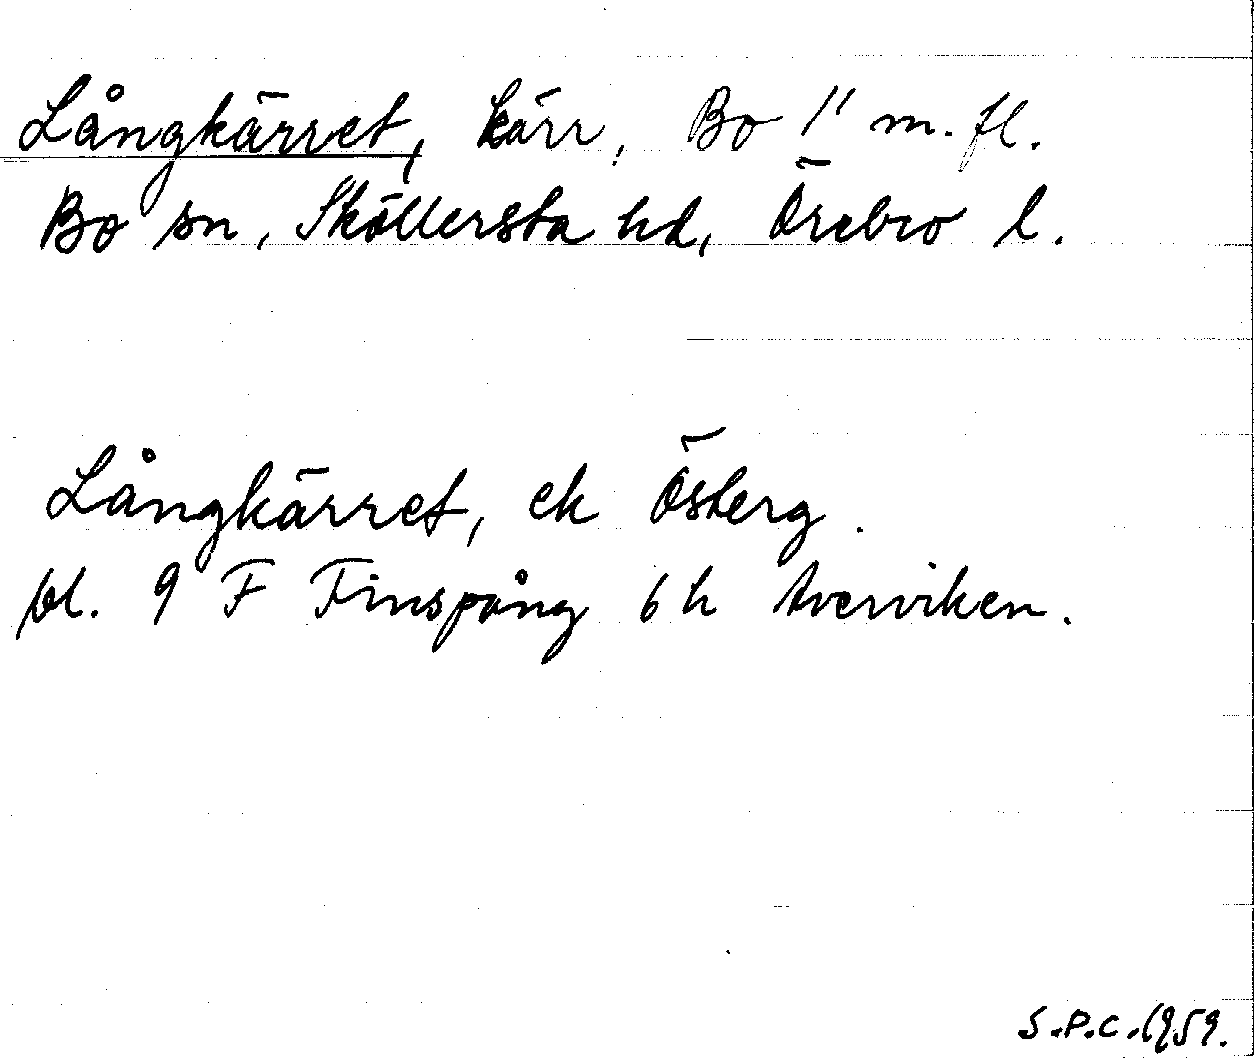 Långkärret, kärr, Bo 1¹ m.fl.
Bo sn, Sköllersta hd, Örebro l.
Långkärret, ek Österg.
bl. 9 F Finspång 6 h Averviken.
S.P.C. 1959.